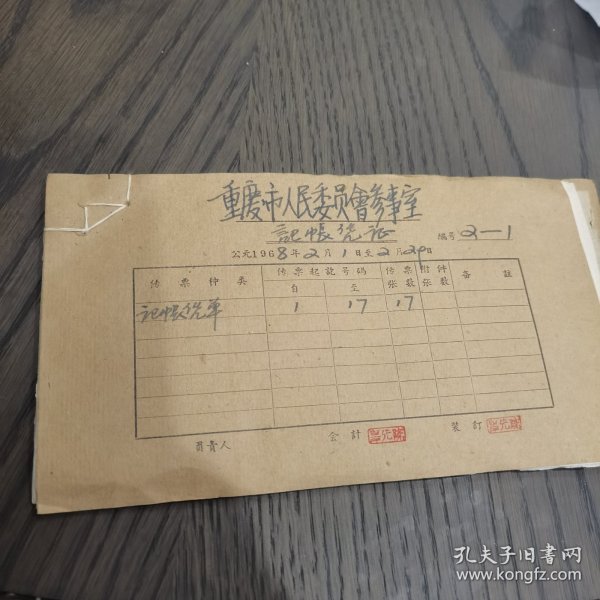 重庆市人民委员會参事室
記帳凭证
编号 2—1
公元1968年2月1日至2月29日
传票种类 传票起訖号碼 自 至 传票张数 附件张数 备註
記帳凭单 1 17 17
負責人 会計 装訂
孔夫子旧书网
www.kongfz.com